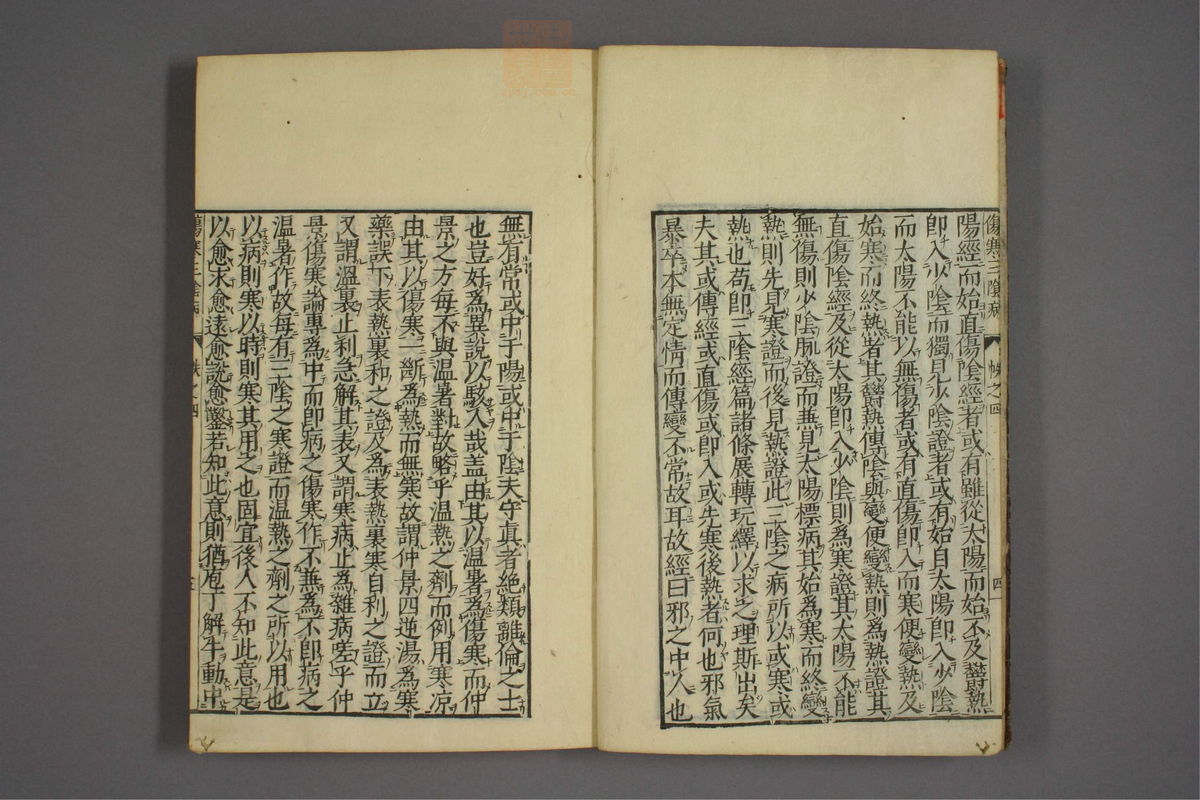 傷寒三陰病 帙之四 四
陽經而始直傷陰經者或有雖從太陽而始不及欝熱
即入少陰而獨見少陰證者或有始自太陽即入少陰
而太陽不能以無傷者或有直傷即入而寒便變熱及
始寒而終熱者其欝熱傳陰與變便變熱則爲熱證其
直傷陰經及從太陽即入少陰則爲寒證其太陽不能
無傷則少陰脈證而兼見太陽標病其始爲寒而終變
熱則先見寒證而後見熱證此三陰之病所以或寒或
熱也苟即三陰經篇諸條展轉玩繹以求之理斯出矣
夫其或傳經或直傷或即入或先寒後熱者何也邪氣
暴卒本無定情而傳變不常故耳故經曰邪之中人也
無有常或中于陽或中于陰夫守真者絶類離倫之士
也豈好爲異說以駭人哉盖由其以温暑爲傷寒而仲
景之方每不與温暑對故略乎温熱之劑而例用寒凉
由其以傷寒一斷爲熱而無寒故謂仲景四逆湯爲寒
藥誤下表熱裏和之證及爲表熱裏寒自利之證而立
又謂温裏止利急解其表又謂寒病止爲雜病嗟乎仲
景傷寒論專爲中而即病之傷寒作不兼爲不即病之
温暑作故每有三陰之寒證而温熱之劑之所以用也
以病則寒以時則寒其用之也固宜後人不知此意是
以愈求愈遠愈說愈鑿若知此意則猶庖丁解牛動中
傷寒三陰病 帙之四